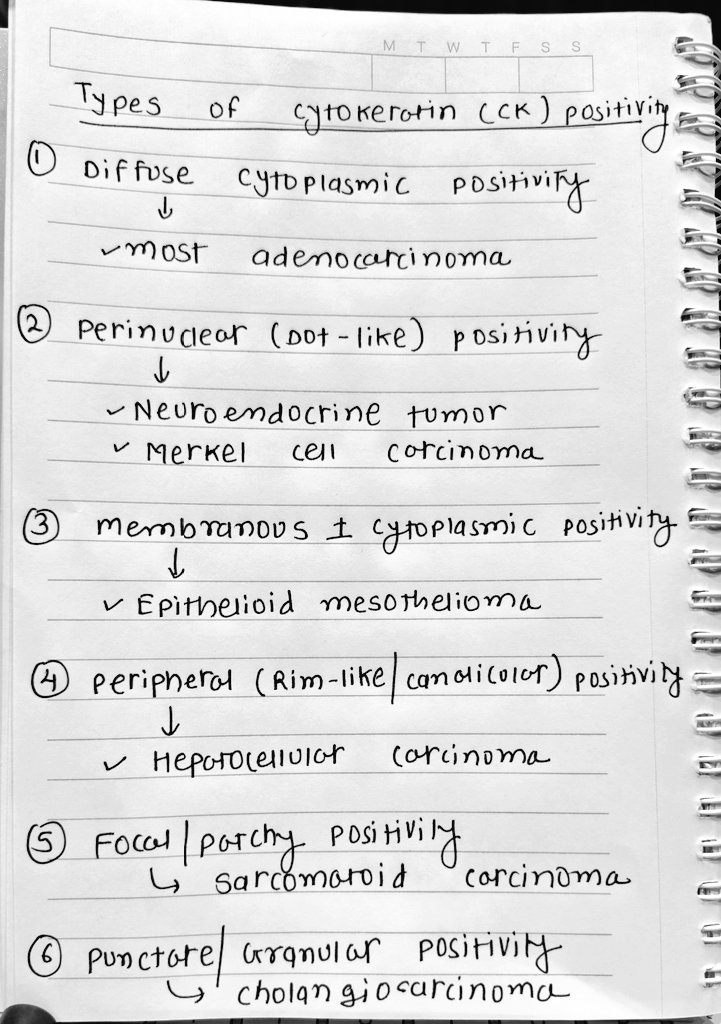 M T W T F S S
Types of cytokeratin (CK) positivity
① Diffuse cytoplasmic positivity
↓
✓ most adenocarcinoma
② Perinuclear (Dot-like) positivity
↓
✓ Neuroendocrine tumor
✓ Merkel cell carcinoma
③ membranous ± cytoplasmic positivity
↓
✓ Epithelioid mesothelioma
④ peripheral (Rim-like/canalicular) positivity
↓
✓ Hepatocellular carcinoma
⑤ Focal/patchy positivity
↳ sarcomatoid carcinoma
⑥ Punctate/Granular positivity
↳ cholangiocarcinoma